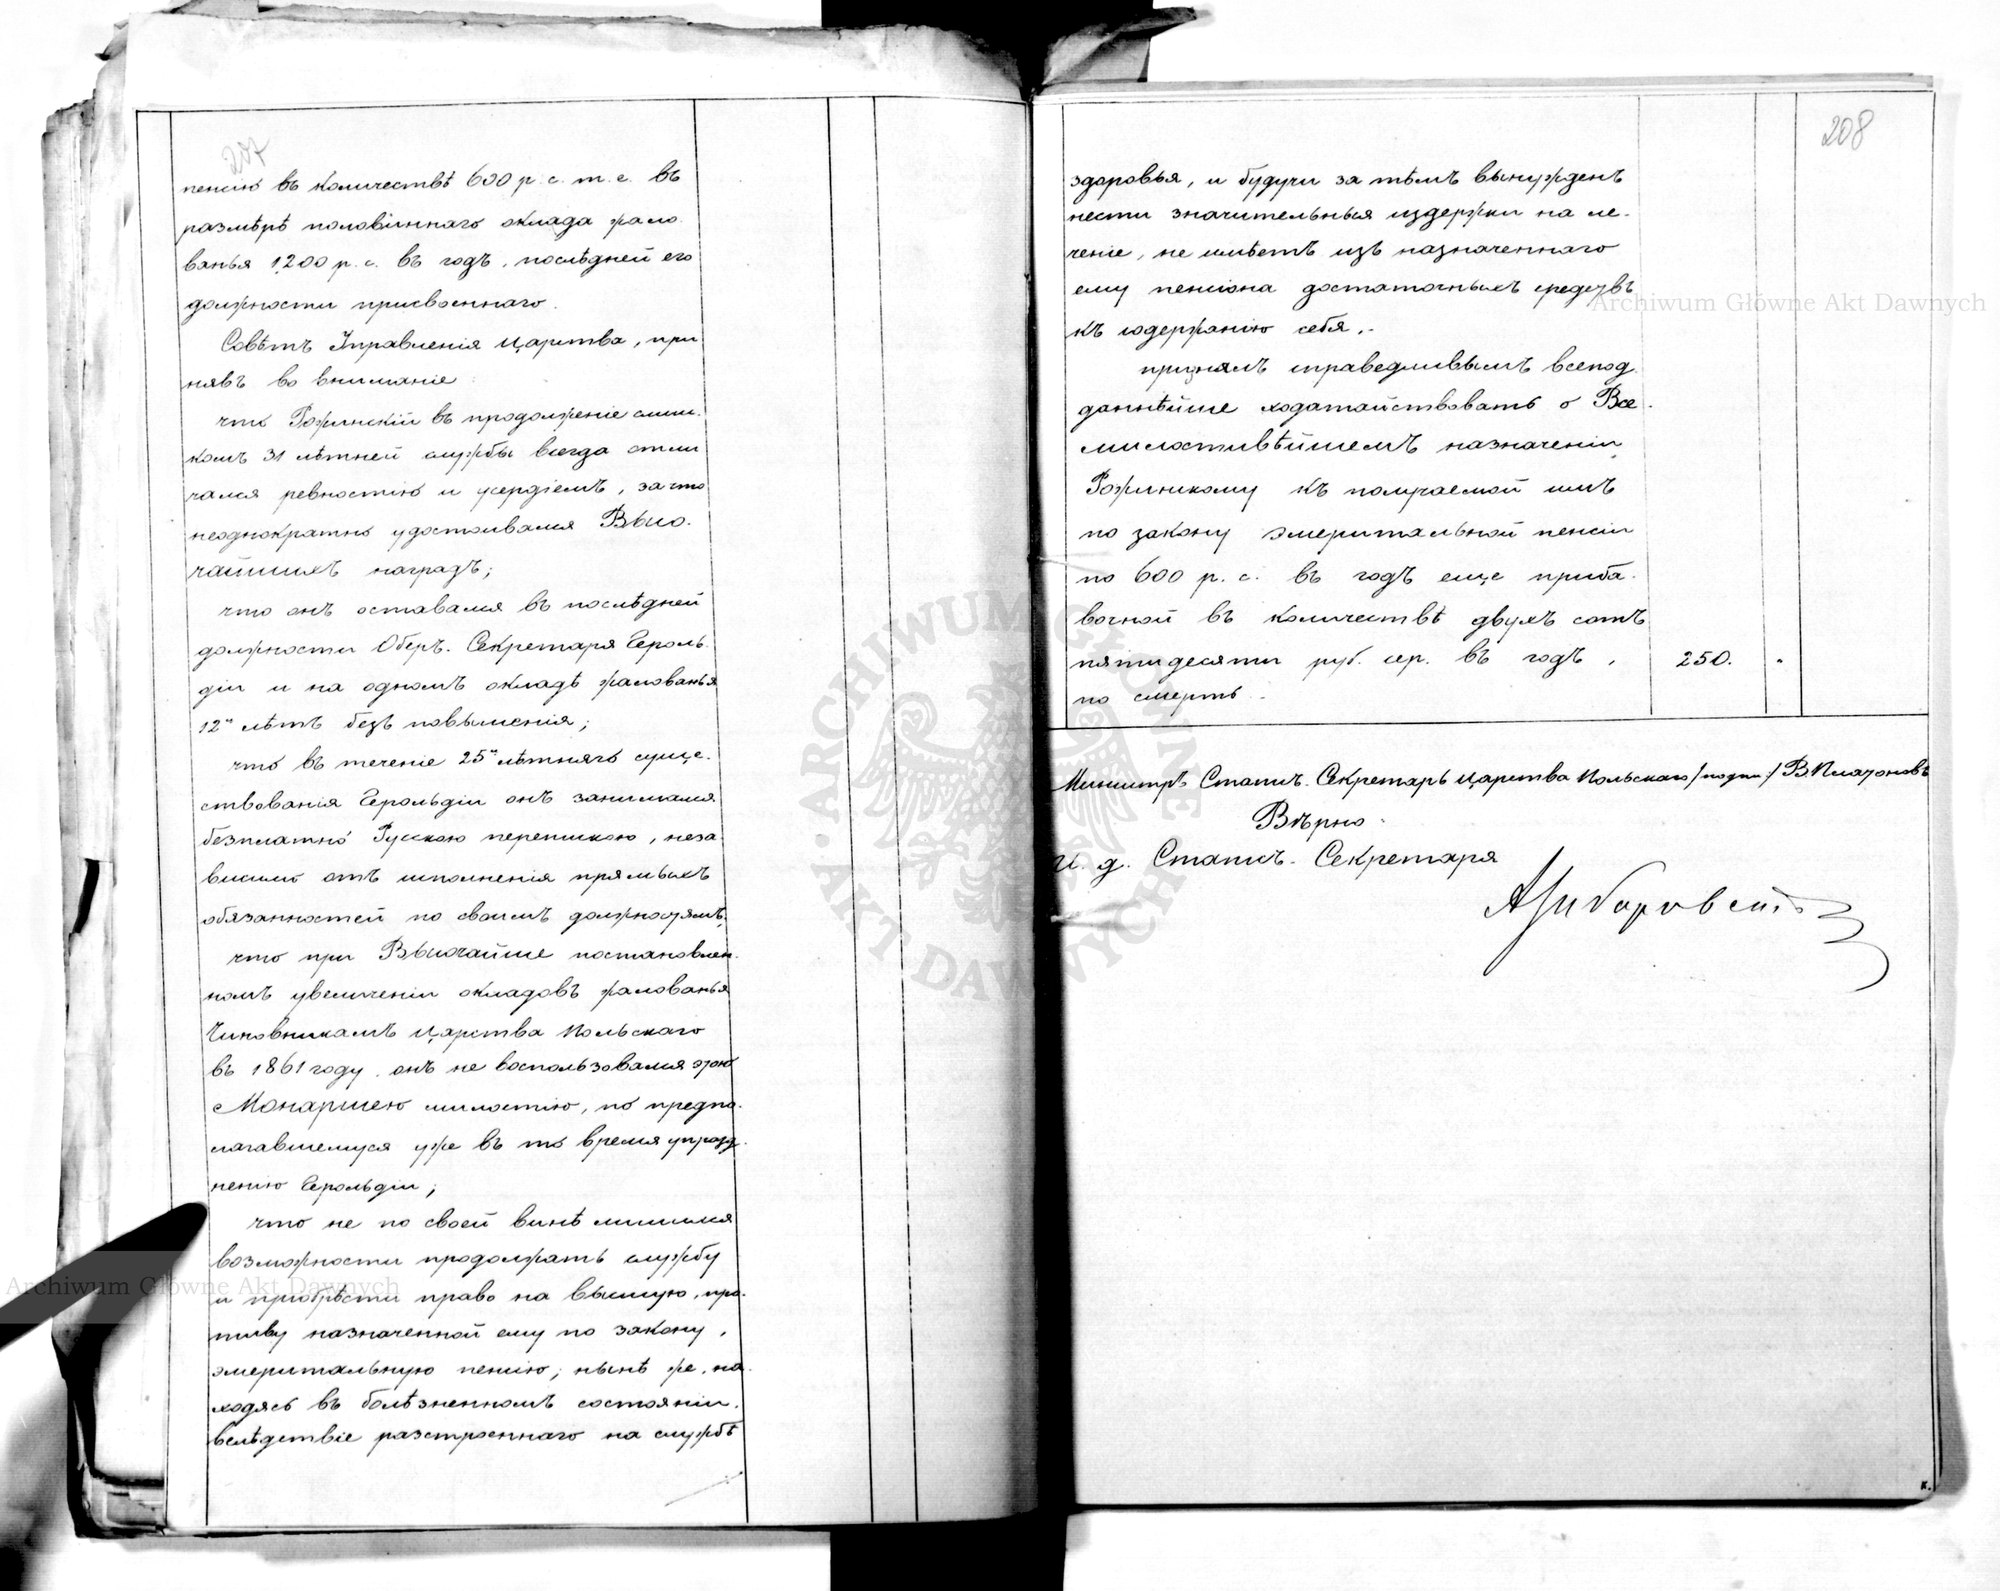 207
пенсію въ количествѣ 600 р. с. т. е. въ
размѣрѣ половиннаго оклада жало-
ванья 1,200 р. с. въ годъ, послѣдней его
должности присвоеннаго.
Совѣтъ Управленія Царства, при
нявъ во вниманіе
что Рожинскій въ продолженіе слиш-
комъ 31 лѣтней службы всегда отли
чался ревностію и усердіемъ, за что
неоднократно удостоивался Высо-
чайшихъ наградъ;
что онъ оставался въ послѣдней
должности Оберъ-Секретаря Героль-
діи и на одномъ окладѣ жалованья
12ть лѣтъ безъ повышенія;
что въ теченіе 25ти лѣтняго суще-
ствованія Герольдіи онъ занимался
безплатно Русскою перепискою, неза-
висимо отъ исполненія прямыхъ
обязанностей по своимъ должностямъ;
что при Высочайше постановлен-
номъ увеличеніи окладовъ жалованья
Чиновникамъ Царства Польскаго
въ 1861 году, онъ не воспользовался этою
Монаршею милостію, по предпо-
лагавшемуся уже въ то время упразд-
ненію Герольдіи;
что не по своей винѣ лишился
возможности продолжать службу
и пріобрѣсти право на высшую, про-
тиву назначенной ему по закону,
эмеритальную пенсію; нынѣ же, на-
ходясь въ болѣзненномъ состояніи,
вслѣдствіе разстроеннаго на службѣ
208
здоровья, и будучи за тѣмъ вынужденъ
нести значительныя издержки на ле-
ченіе, не имѣетъ изъ назначеннаго
ему пенсіона достаточныхъ средствъ
къ содержанію себя,-
призналъ справедливымъ всепод-
даннѣйше ходатайствовать о Все-
милостивѣйшемъ назначеніи
Рожинскому къ получаемой имъ
по закону эмеритальной пенсіи
по 600 р. с. въ годъ еще приба-
вочной въ количествѣ двухъ сотъ
пятидесяти руб. сер. въ годъ, 250. "
по смерть.
Министръ Статсъ-Секретарь Царства Польскаго /подпис:/ В. Платоновъ
Вѣрно.
И. д. Статсъ-Секретаря
Archiwum Główne Akt Dawnych
Archiwum Główne Akt Dawnych
ARCHIWUM GŁÓWNE AKT DAWNYCH